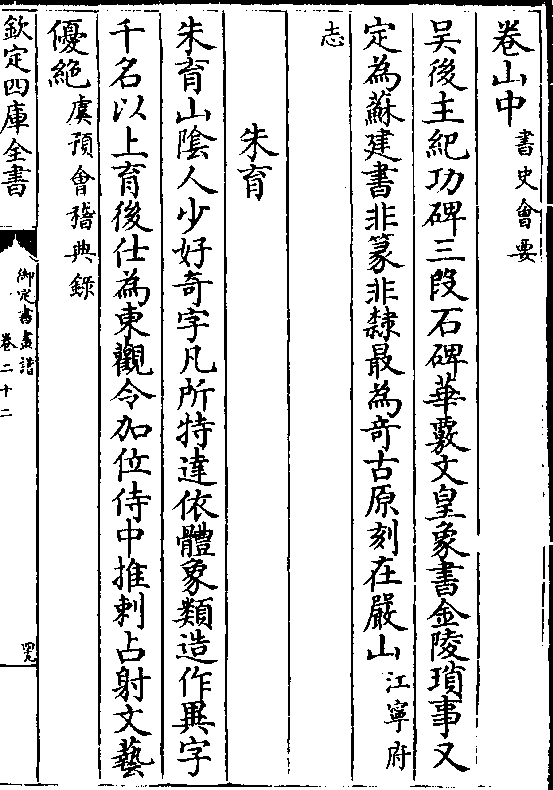 卷山中書史會要
吳後主紀功碑三段石碑華覈文皇象書金陵瑣事又
定為蘇建書非篆非隸最為奇古原刻在嚴山江寧府
志
朱育
朱育山陰人少好奇字凡所特達依體象類造作異字
千名以上育後仕為東觀令加位侍中推刺占射文藝
優絕虞預會稽典錄
欽定四庫全書
御定書畫譜
卷二十二